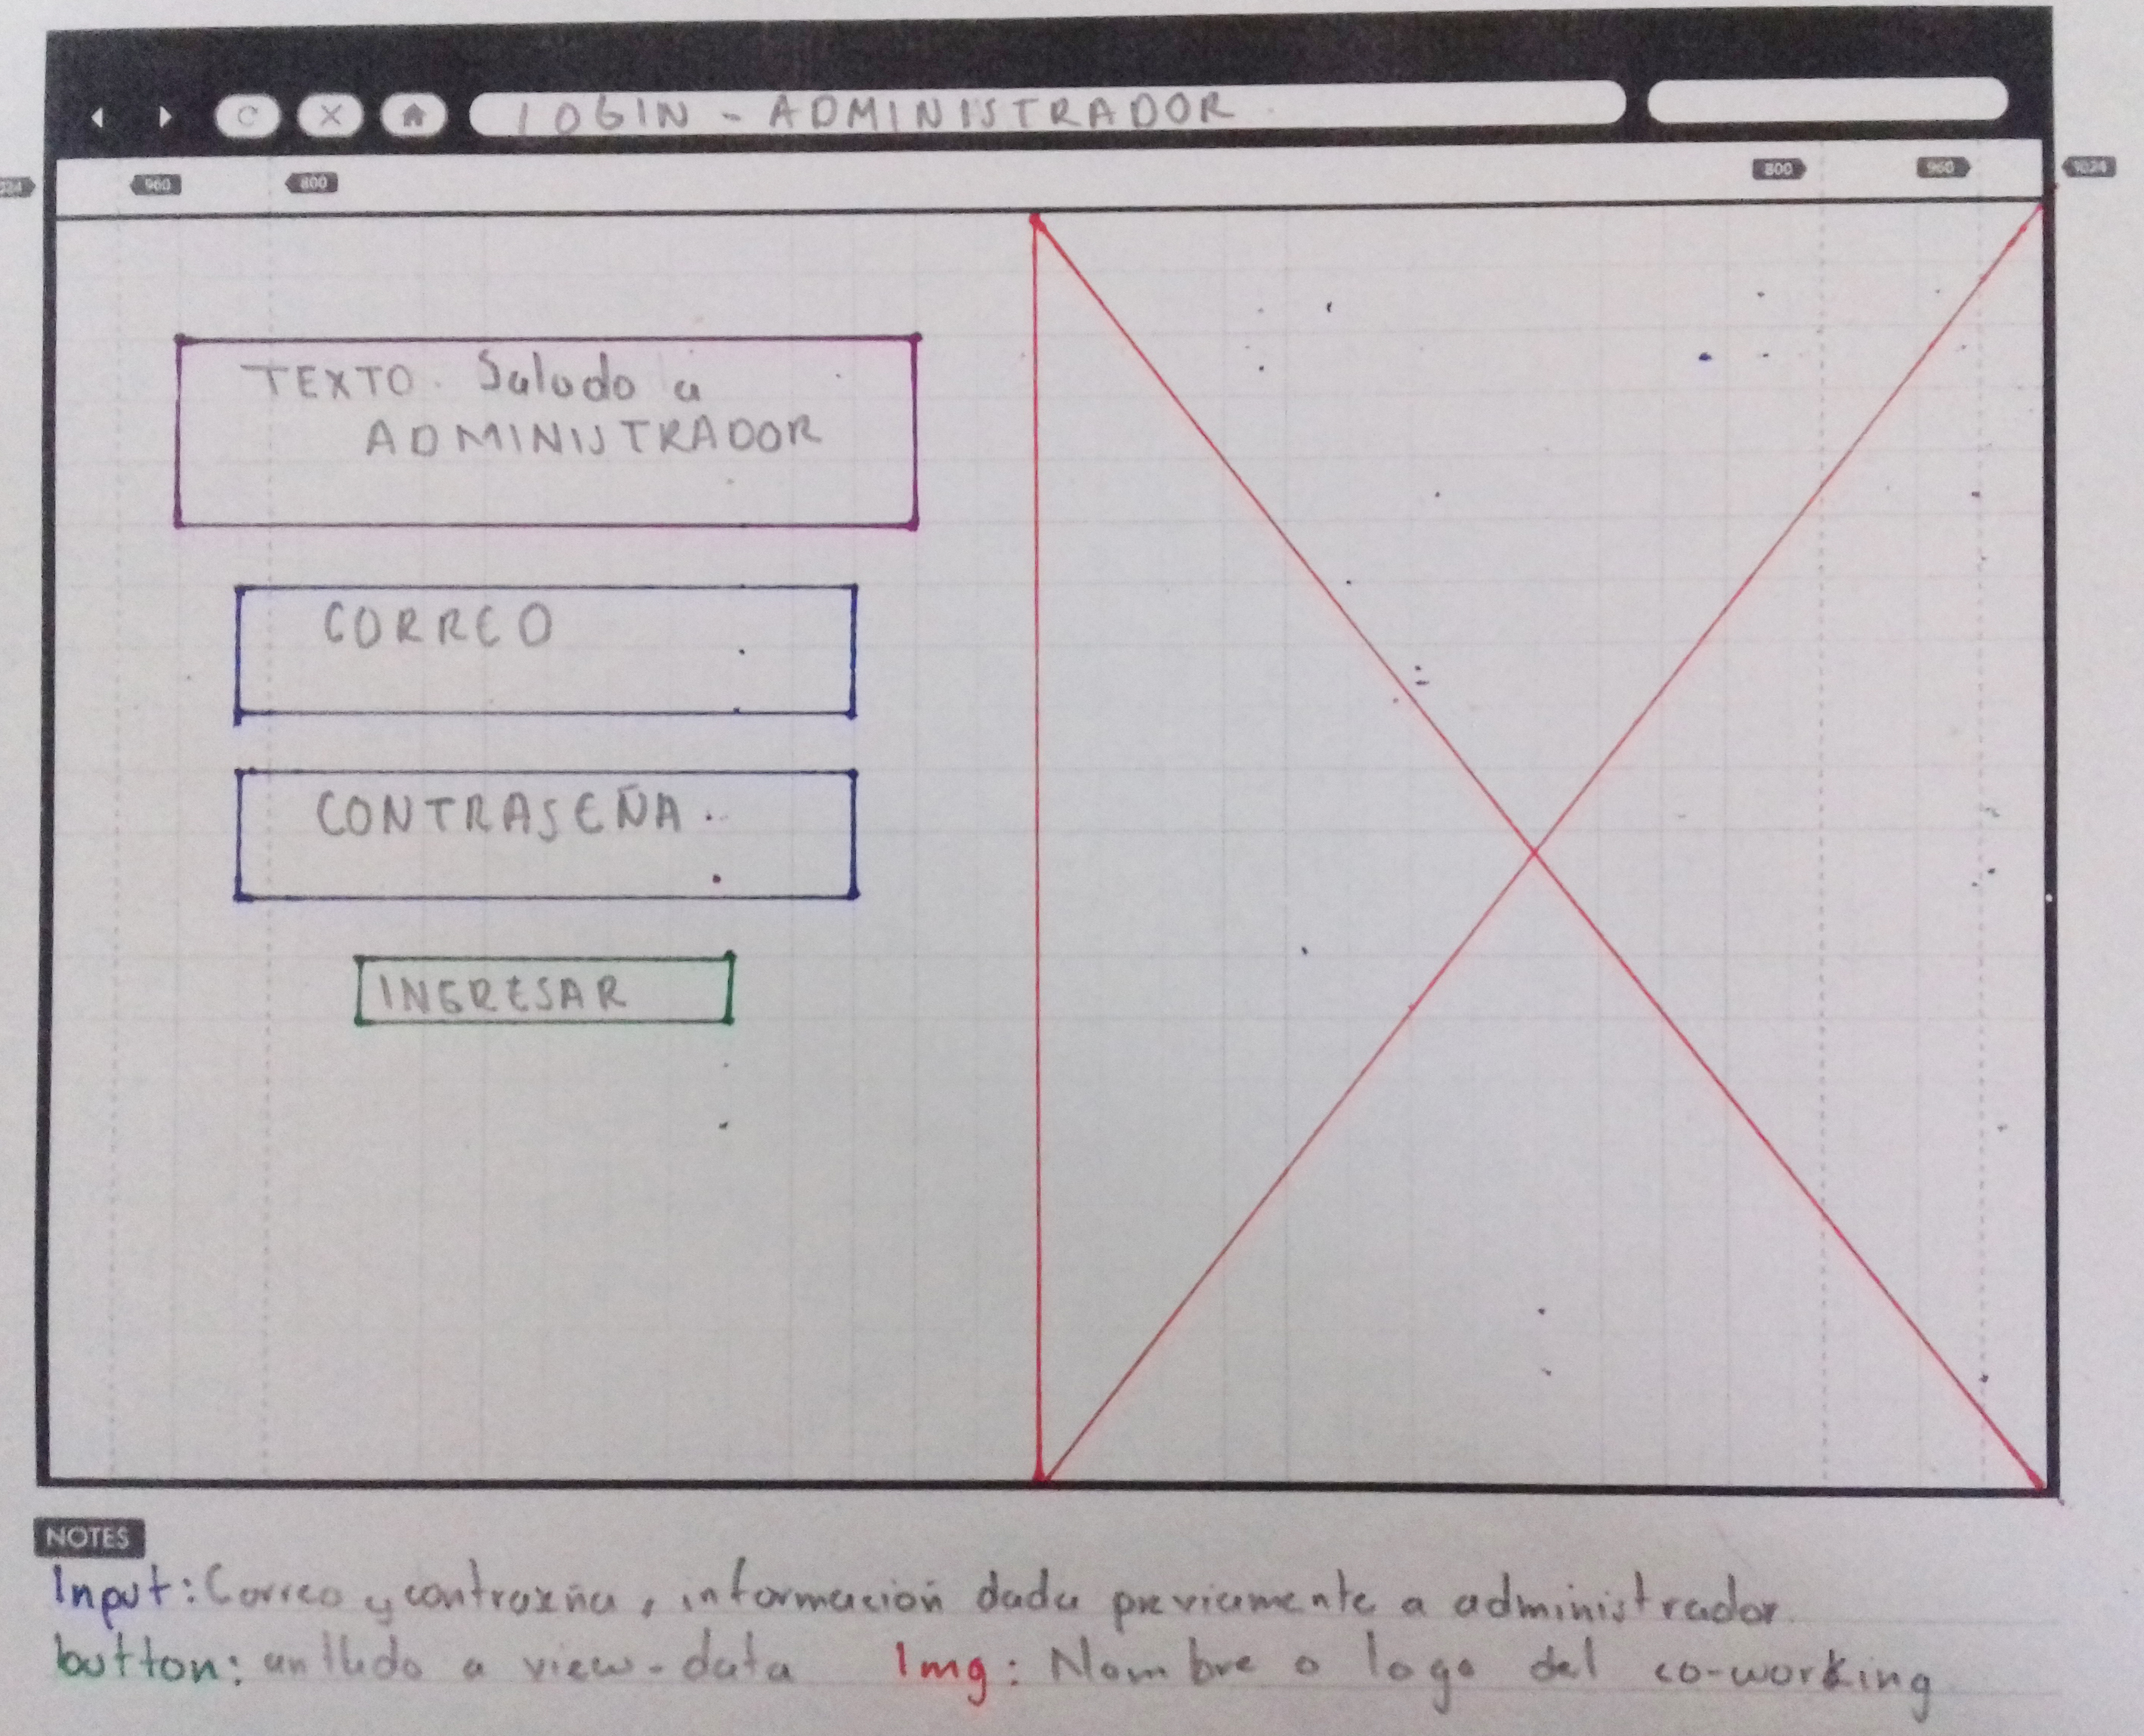 LOGIN - ADMINISTRADOR
960 800 800 960 1024
TEXTO. Saludo a
ADMINISTRADOR
CORREO
CONTRASEÑA.
INGRESAR
NOTES
Input: Correo y contraseña, información dada previamente a administrador.
button: a view-data Img: Nombre o logo del co-working